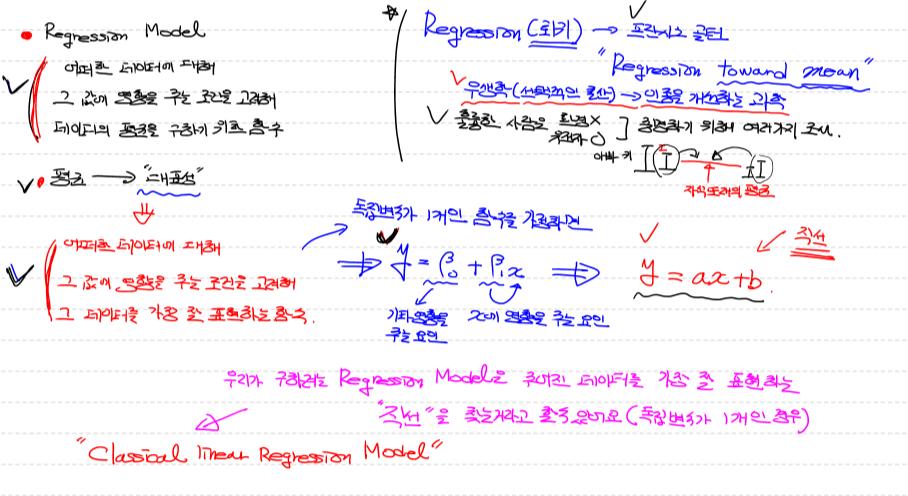 Regression Model
어떠한 데이터에 대해
그 값에 영향을 주는 조건을 고려해
데이터의 평균을 구하기 위한 함수
평균 → "대표성"
어떠한 데이터에 대해
그 값에 영향을 주는 조건을 고려해
그 데이터를 가장 잘 표현하는 함수.
Regression (회귀) → 프란시스 골턴
"Regression toward mean"
우생학 (선택적인 출산) → 인종을 개선하는 과학
훌륭한 사람은 환경 X
유전자 O
증명하기 위해 여러가지 조사.
아빠 키
자식또래의 평균
독립변수가 1개인 함수를 가정하면
⇒ y = β₀ + β₁x ⇒ y = ax + b.
직선
기타 영향을 주는 요인
x에 영향을 주는 요인
우리가 구하려는 Regression Model은 주어진 데이터를 가장 잘 표현하는
"직선"을 찾는거라고 할 수 있어요 (독립변수가 1개인 경우)
"Classical linear Regression Model"